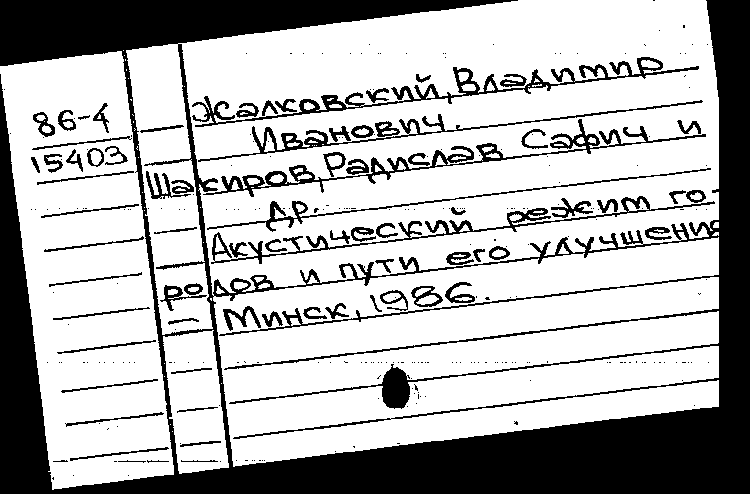 86-4
15403
Жалковский, Владимир
Иванович.
Шакиров, Радислав Сафич и
др.
Акустический режим го-
родов и пути его улучшения
Минск, 1986.